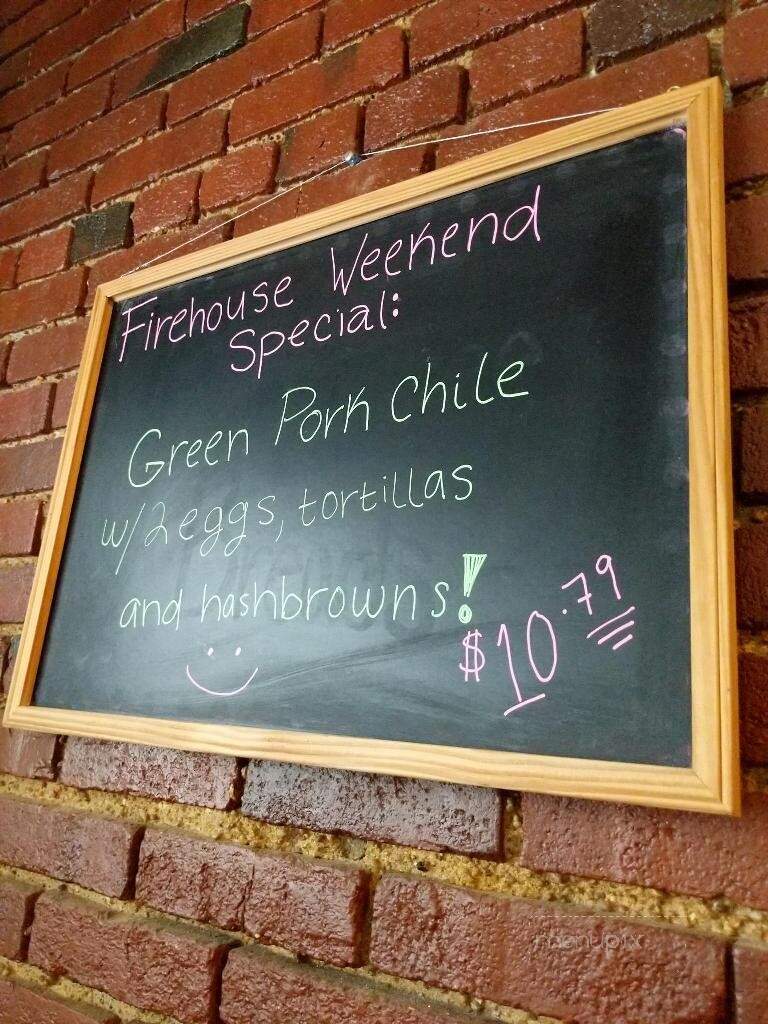 Firehouse Weekend
Special:
Green Pork Chile
w/2 eggs, tortillas
and hashbrowns!
$10.79
menupix